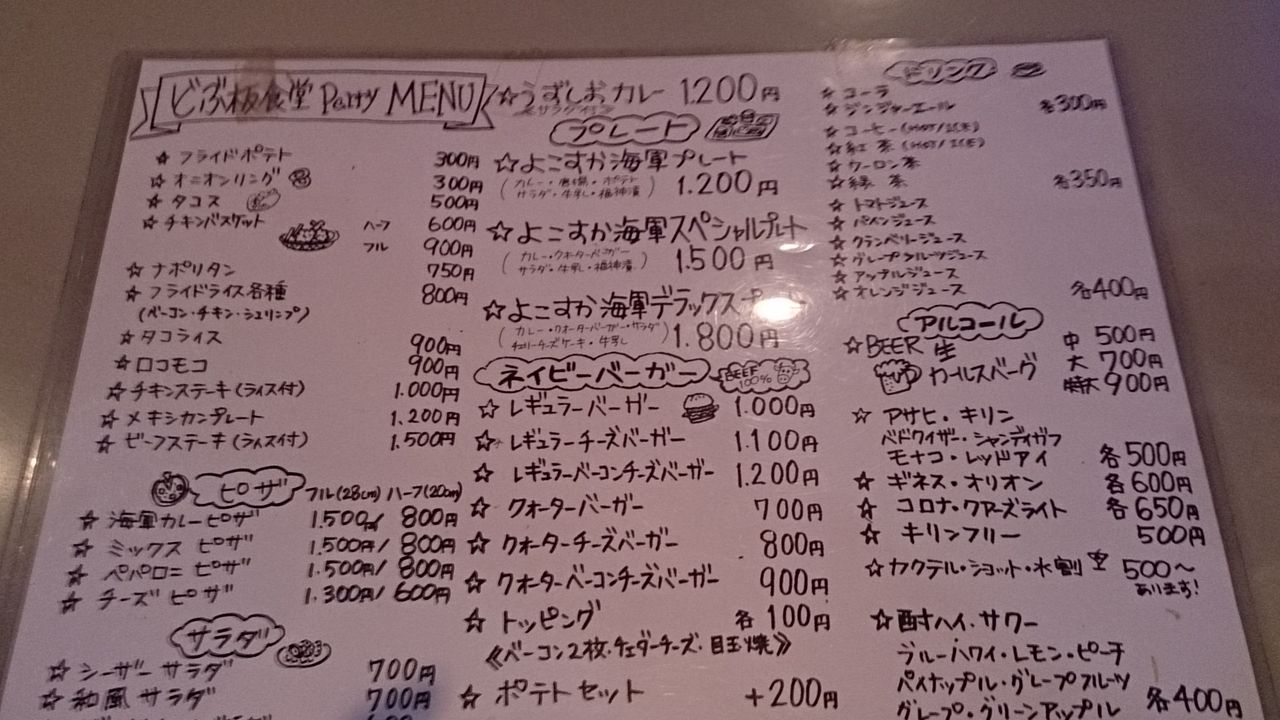 どぶ板食堂 Party MENU
☆フライドポテト 300円
☆オニオンリング 300円
☆タコス 500円
☆チキンバスケット ハーフ 600円
フル 900円
☆ナポリタン 750円
☆フライドライス各種 800円
(ベーコン・チキン・シュリンプ)
☆タコライス 900円
☆ロコモコ 900円
☆チキンステーキ(ライス付) 1.000円
☆メキシカンプレート 1.200円
☆ビーフステーキ(ライス付) 1.500円
ピザ フル(28cm) ハーフ(20cm)
☆海軍カレーピザ 1.500円/800円
☆ミックスピザ 1.500円/800円
☆ペパロニピザ 1.500円/800円
☆チーズピザ 1.300円/600円
サラダ
☆シーザーサラダ 700円
☆和風サラダ 700円
☆うずしおカレー 1.200円
<サラダ付>
プレート
☆よこすか海軍プレート
(カレー・唐揚・ポテト
サラダ・牛乳・福神漬) 1.200円
☆よこすか海軍スペシャルプレート
(カレー・クォーターバーガー
サラダ・牛乳・福神漬) 1.500円
☆よこすか海軍デラックス
(カレー・クォーターバーガー・サラダ
チェリーチーズケーキ・牛乳) 1.800円
ネイビーバーガー BEEF 100%
☆レギュラーバーガー 1.000円
☆レギュラーチーズバーガー 1.100円
☆レギュラーベーコンチーズバーガー 1.200円
☆クォーターバーガー 700円
☆クォーターチーズバーガー 800円
☆クォーターベーコンチーズバーガー 900円
☆トッピング 各100円
《ベーコン2枚・チェダーチーズ・目玉焼》
☆ポテトセット +200円
ドリンク
☆コーラ
☆ジンジャーエール 各300円
☆コーヒー(HOT/ICE)
☆紅茶(HOT/ICE)
☆ウーロン茶
☆緑茶 各350円
☆トマトジュース
☆パインジュース
☆クランベリージュース
☆グレープフルーツジュース
☆アップルジュース
☆オレンジジュース 各400円
アルコール
☆BEER 生 中 500円
カールスバーグ 大 700円
特大 900円
☆アサヒ・キリン
バドワイザー・シャンディガフ
モナコ・レッドアイ 各500円
☆ギネス・オリオン 各600円
☆コロナ・クアーズライト 各650円
☆キリンフリー 500円
☆カクテル・ショット・水割 500〜
あります!
☆酎ハイ・サワー
ブルーハワイ・レモン・ピーチ
パイナップル・グレープフルーツ
グレープ・グリーンアップル 各400円